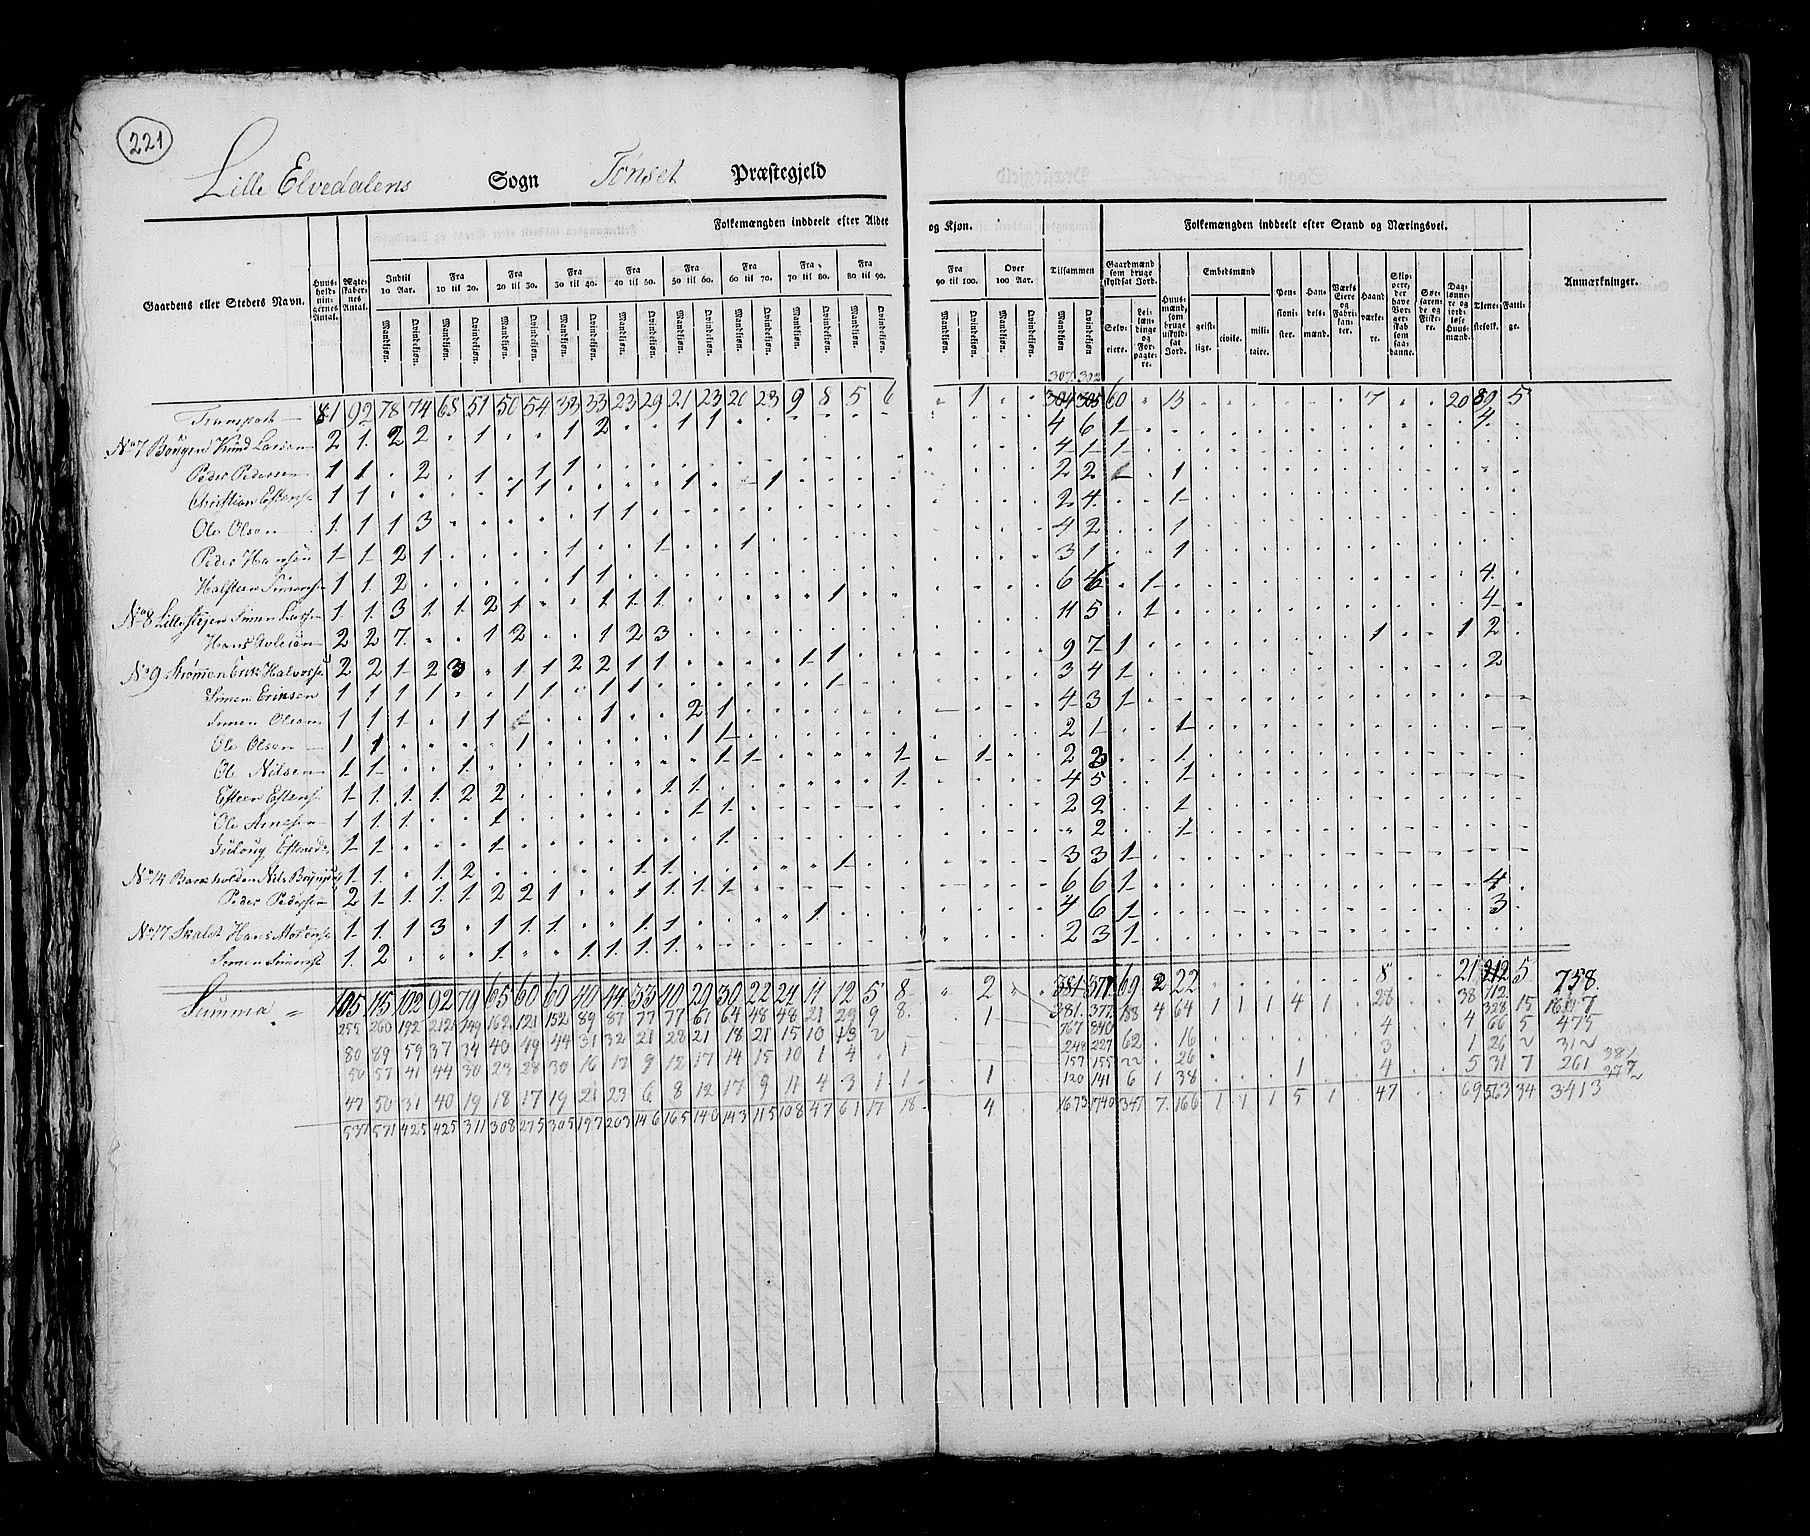 221
Lille Elvedalens Sogn Tönset Præstegjeld
Folkemængden inddeelt efter Alder og Kjøn. Folkemængden inddeelt efter Stand og Næringsvei.
Gaardens eller Stedets Navn. Huusholdningernes Antal. Ægteskabernes Antal. Indtil 10 Aar. Fra 10 til 20. Fra 20 til 30. Fra 30 til 40. Fra 40 til 50. Fra 50 til 60. Fra 60 til 70. Fra 70 til 80. Fra 80 til 90. Fra 90 til 100. Over 100 Aar. Tilsammen Gaardmænd som bruge skyldsat Jord. Huusmænd, som bruge uskyldsat Jord. Embedsmænd Pensionister. Handelsmænd. Værks Eiere og Fabrikanter. Haandværkere. Skippere, der have Borgerskab som saadanne. Søefarende og Fiskere. Daglønnere og jordløse Huusmænd. Tienestefolk. Fattige. Anmærkninger.
Mandkjøn. Qvindekjøn. Mandkjøn. Qvindekjøn. Mandkjøn. Qvindekjøn. Mandkjøn. Qvindekjøn. Mandkjøn. Qvindekjøn. Mandkjøn. Qvindekjøn. Mandkjøn. Qvindekjøn. Mandkjøn. Qvindekjøn. Mandkjøn. Qvindekjøn. Mandkjøn. Qvindekjøn. Mandkjøn. Qvindekjøn. Mandkjøn. Qvindekjøn. Selveiere. Leilændinge og Forpagtere. geistlige. civile. militaire.
307 302
Transport 81 92 78 74 68 51 50 54 33 33 23 29 21 23 20 23 9 8 5 6 1 304 305 60 13 7 20 89 5
No 7 Knud Larsen 2 1 2 2 1 1 2 1 1 4 6 1 4
Peder Pedersen 1 1 2 1 1 1 4 1 1
Christian Estens. 1 1 1 1 1 1 2 2 1
Ole Olsen 1 1 1 3 1 1 2 4 1
Peder Hansen 1 1 2 1 1 1 1 4 2 1
Halsteen Simens. 1 1 2 1 1 3 1 1
No 8 Simen 1 1 3 1 1 2 1 1 1 1 1 6 1 4
Hans 2 2 7 1 2 1 2 3 11 5 1 4
No 9 Strömmen Erik Halvors. 2 2 1 2 3 1 1 2 2 1 1 1 1 9 7 1 1 1 2
Simen Eriksen 1 1 1 1 1 1 1 1 1 3 4 1 2
Simen Olsen 1 1 1 1 1 1 2 1 4 3 1
Ole Olsen 1 1 1 1 1 2 1 1
Ol. Nilsen 1 1 1 1 1 1 1 2 3 1
Esteen Estens. 1 1 1 1 2 2 1 1 1 4 5 1
Ole Arnesen 1 1 1 1 1 1 2 2 1
Estensd. 1 1 1 1 2 1
No 14 Nils 1 1 1 2 1 1 1 3 3 1
Peder Pedersen 2 1 1 1 1 2 2 1 1 1 1 1 6 6 1 4
No 17 Hans 1 1 1 3 1 1 1 1 1 1 4 6 1 3
Simen Simens. 1 2 1 1 1 1 1 2 3 1
Summa 105 115 102 92 79 65 60 60 40 44 33 40 29 30 22 24 11 12 5 8 2 381 377 69 2 22 8 21 112 5 758
255 260 192 212 149 162 121 152 89 87 77 77 61 64 48 48 21 29 9 8 1 767 840 188 4 64 1 1 1 4 1 28 38 328 15 1607
80 89 59 37 34 40 49 44 31 32 21 28 21 18 21 15 10 13 2 248 227 62 16 4 4 66 5 475
50 57 41 44 30 23 28 30 16 17 9 12 17 14 15 10 1 4 1 157 155 22 26 3 1 26 2 312
47 50 31 40 19 18 17 19 21 23 6 8 12 17 9 11 4 3 1 1 1 120 141 6 1 38 1 4 5 31 7 261
537 571 425 425 311 308 275 305 197 203 146 165 140 143 115 108 47 61 17 18 4 1673 1740 347 7 166 1 1 1 5 1 47 69 563 34 3413
381
377